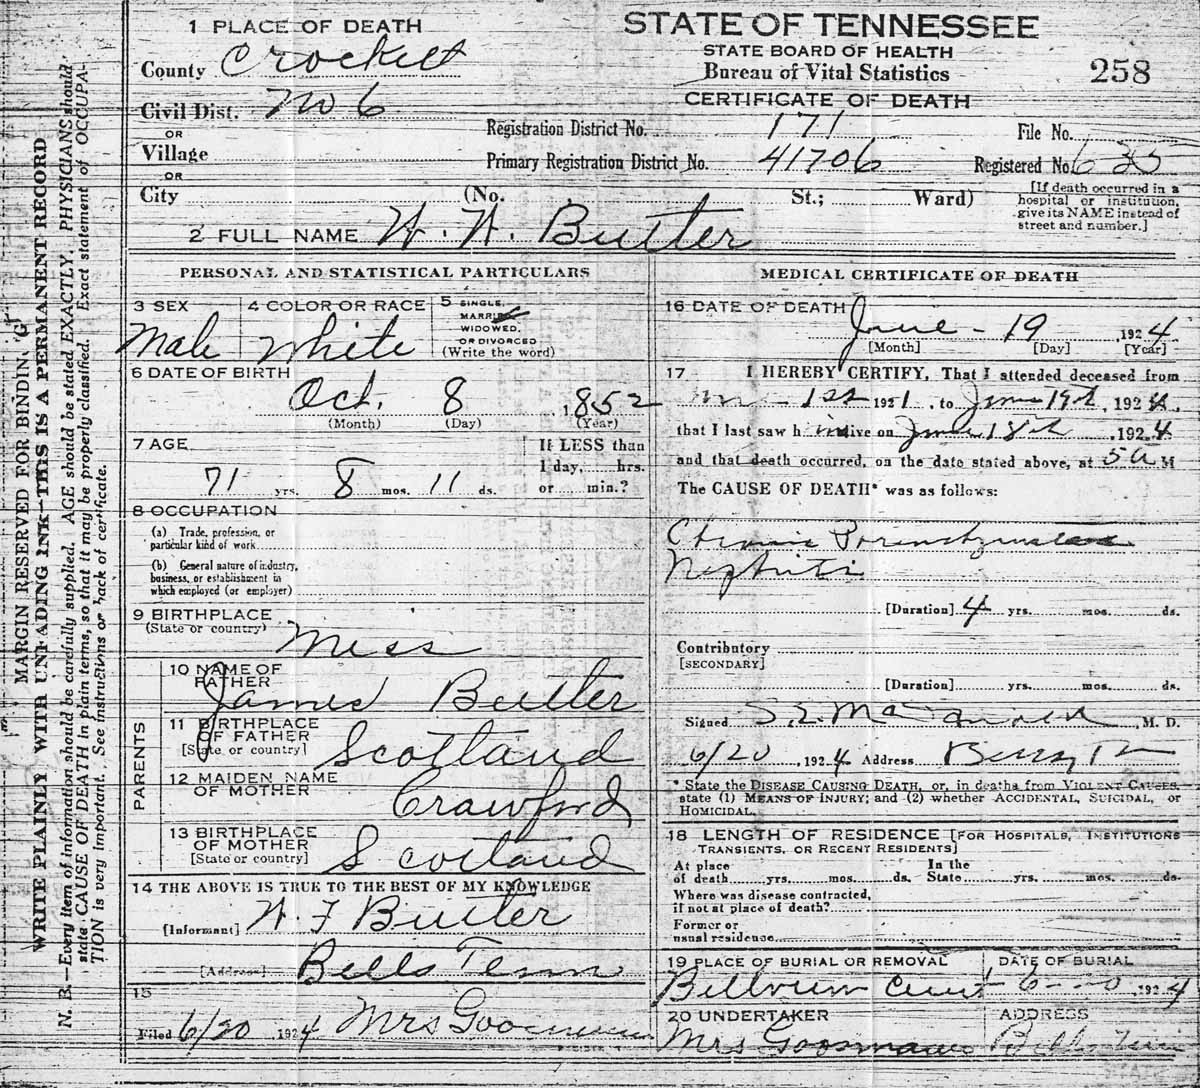 MARGIN RESERVED FOR BINDING.
WRITE PLAINLY WITH UNFADING INK—THIS IS A PERMANENT RECORD
N. B.—Every item of information should be carefully supplied. AGE should be stated EXACTLY. PHYSICIANS should
state CAUSE OF DEATH in plain terms, so that it may be properly classified. Exact statement of OCCUPA-
TION is very important. See instructions on back of certificate.
1 PLACE OF DEATH
County Crockett
Civil Dist. No 6
OR
Village
OR
City
(No. St.; Ward)
STATE OF TENNESSEE
STATE BOARD OF HEALTH
Bureau of Vital Statistics
CERTIFICATE OF DEATH
258
Registration District No. 171
File No.
Primary Registration District No. 41706
Registered No. 625
[If death occurred in a
hospital or institution,
give its NAME instead of
street and number.]
2 FULL NAME Butler
PERSONAL AND STATISTICAL PARTICULARS
3 SEX
Male
4 COLOR OR RACE
White
5 SINGLE,
MARRIED,
WIDOWED,
OR DIVORCED
(Write the word)
6 DATE OF BIRTH
Oct. 8 , 1852
(Month) (Day) (Year)
7 AGE
71 yrs. 8 mos. 11 ds.
If LESS than
1 day, hrs.
or min.?
8 OCCUPATION
(a) Trade, profession, or
particular kind of work
(b) General nature of industry,
business, or establishment in
which employed (or employer)
9 BIRTHPLACE
(State or country)
Miss
PARENTS
10 NAME OF
FATHER
James Butler
11 BIRTHPLACE
OF FATHER
[State or country]
Scotland
12 MAIDEN NAME
OF MOTHER
Crawford
13 BIRTHPLACE
OF MOTHER
[State or country]
Scotland
14 THE ABOVE IS TRUE TO THE BEST OF MY KNOWLEDGE
[Informant] Butler
[Address] Bells Tenn
15
Filed 6/20 1924 Mrs
MEDICAL CERTIFICATE OF DEATH
16 DATE OF DEATH
June - 19 , 1924
[Month] [Day] [Year]
17 I HEREBY CERTIFY, That I attended deceased from
1st 1921, to June 19th, 1924
that I last saw him alive on June 18th, 1924
and that death occurred, on the date stated above, at 5 a M
The CAUSE OF DEATH* was as follows:
[Duration] 4 yrs. mos. ds.
Contributory
[SECONDARY]
[Duration] yrs. mos. ds.
Signed , M. D.
6/20 , 1924 Address
* State the DISEASE CAUSING DEATH, or, in deaths from VIOLENT CAUSES,
state (1) MEANS OF INJURY; and (2) whether ACCIDENTAL, SUICIDAL, or
HOMICIDAL.
18 LENGTH OF RESIDENCE [FOR HOSPITALS, INSTITUTIONS
TRANSIENTS, OR RECENT RESIDENTS]
At place
of death yrs. mos. ds.
In the
State yrs. mos. ds.
Where was disease contracted,
if not at place of death?
Former or
usual residence
19 PLACE OF BURIAL OR REMOVAL
DATE OF BURIAL
6-20 1924
20 UNDERTAKER
Mrs
ADDRESS
Bells Tenn